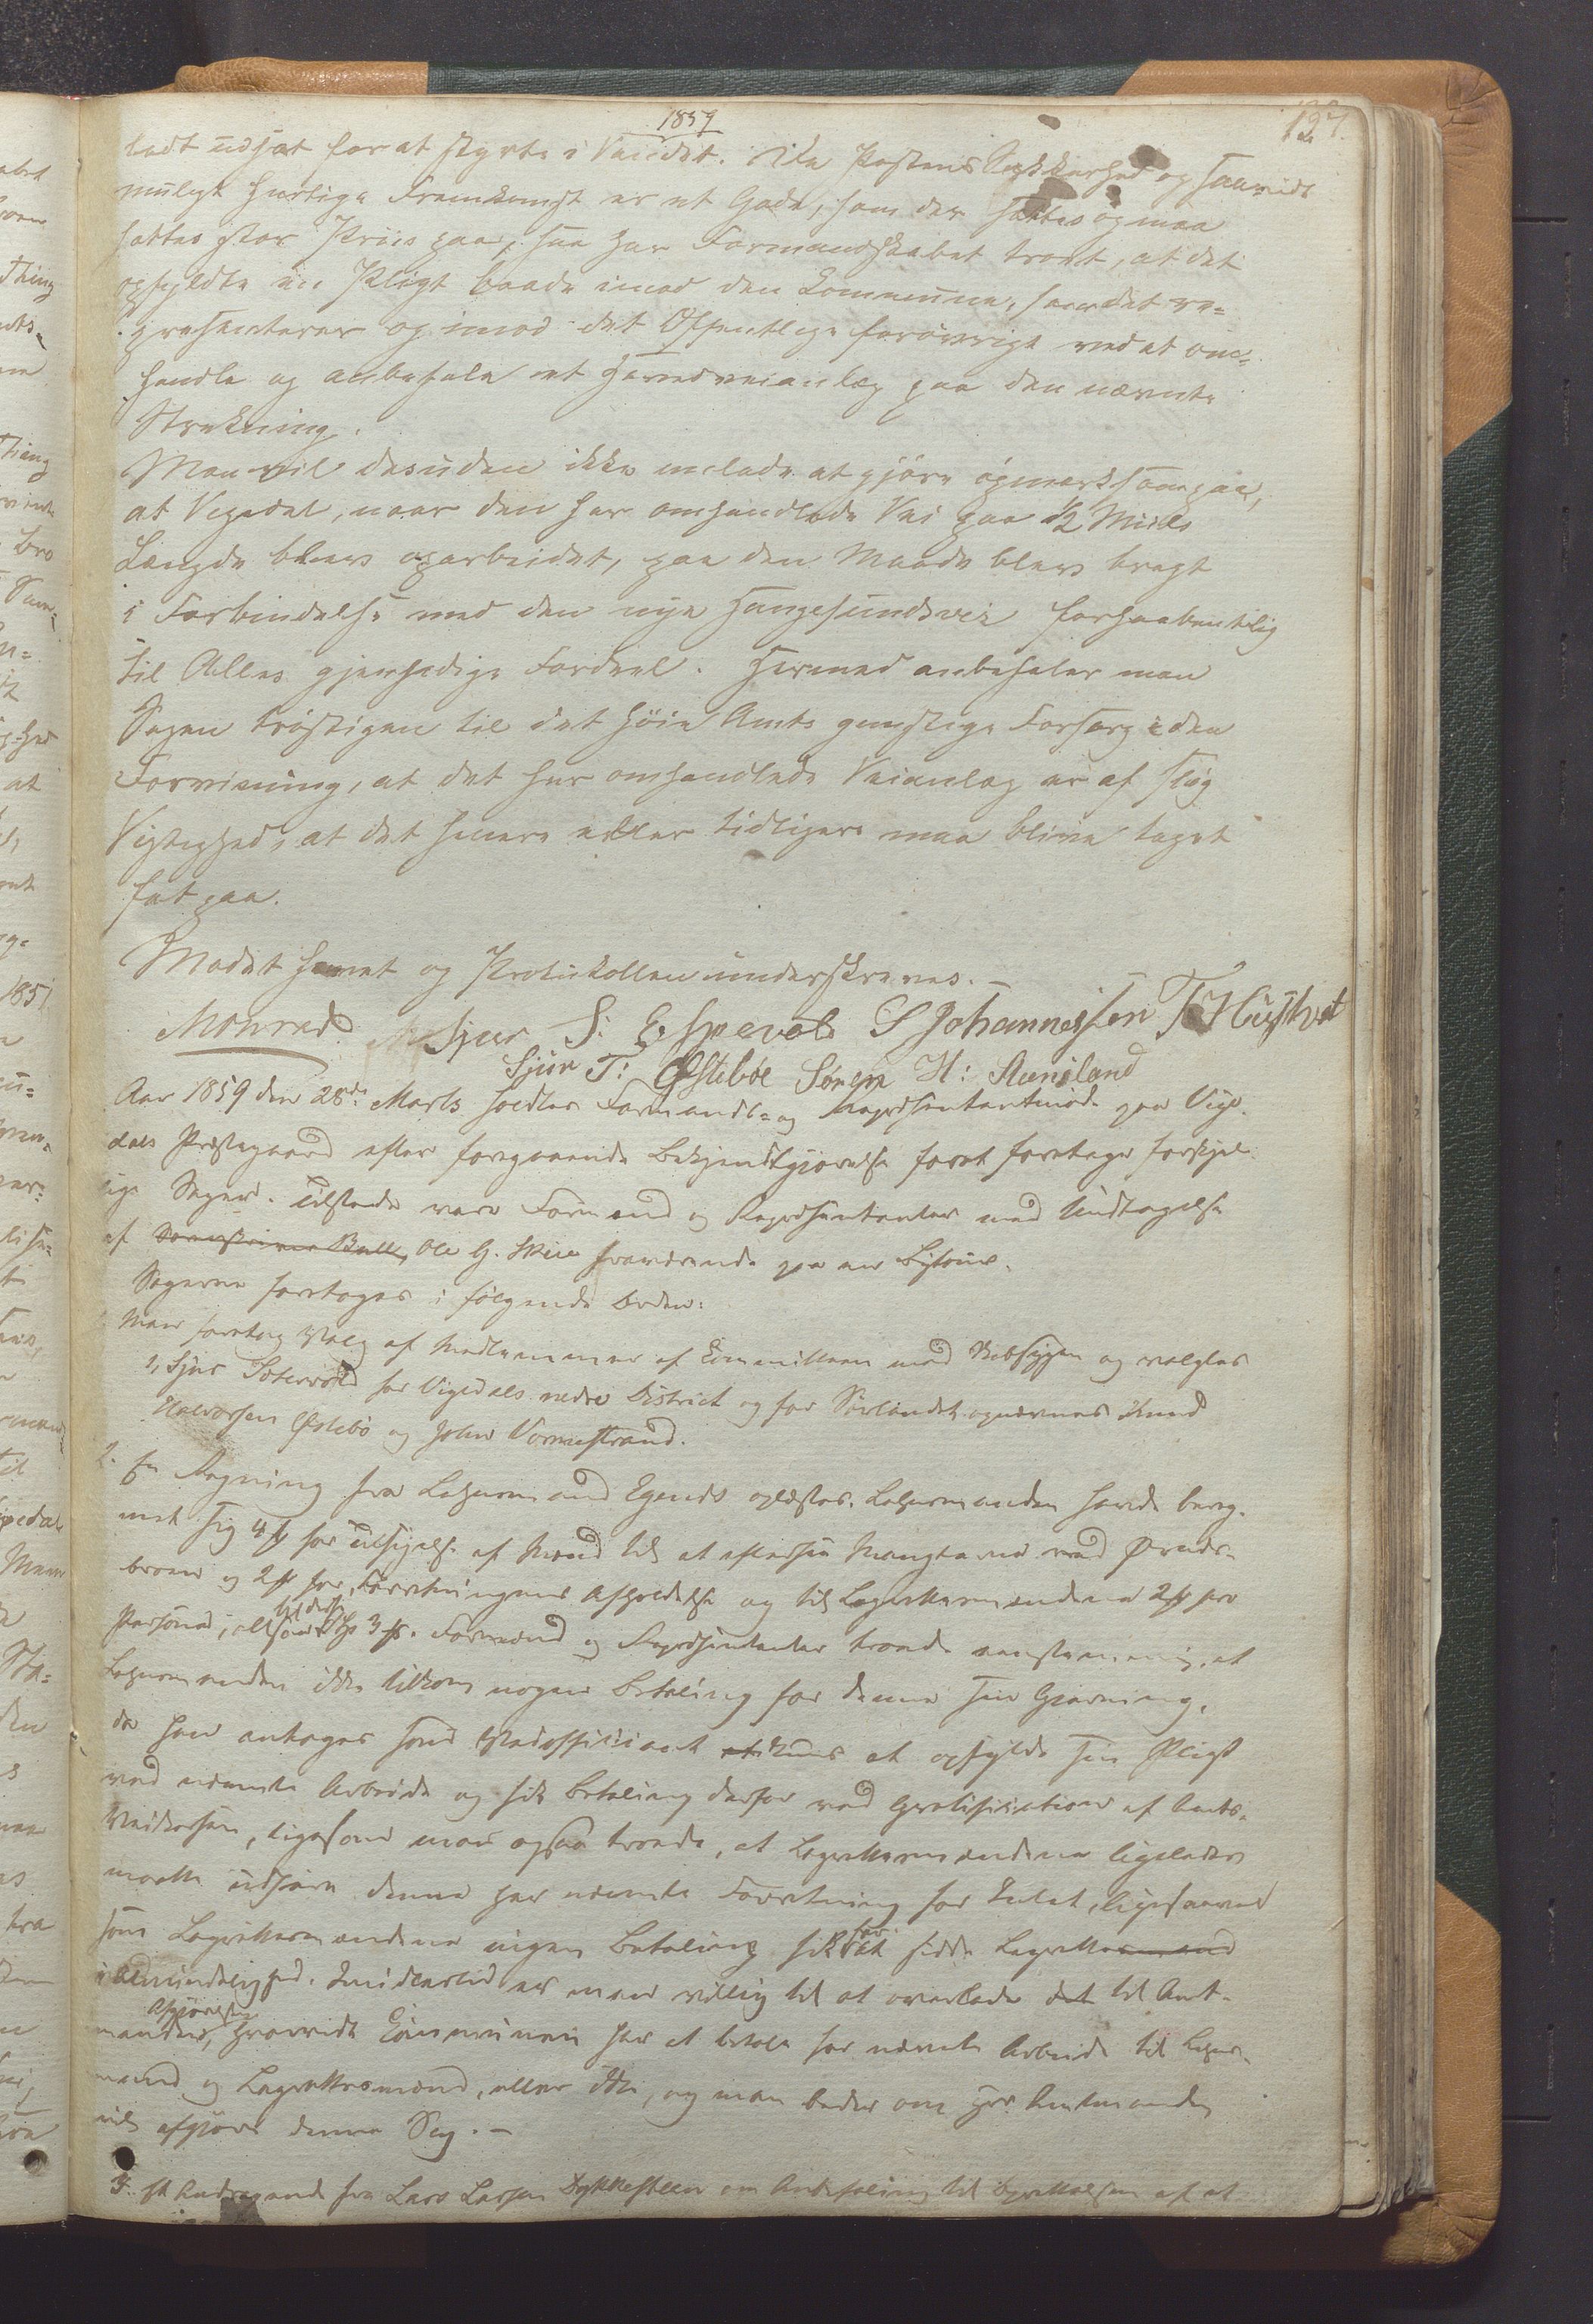 1859
127.
ladt udsat for at styrte i Vandet. Da Postens Sikkerhed og saavidt
muligt hurtige Fremkomst er et Gode, som der sættes og maa
sættes stor Priis paa, saa har Formandskabet troet, at det
opfyldte en Pligt baade imod den Commune, som det re=
præsenterer og imod det Offentlige forövrigt ved at om=
handle og anbefale et Hovedveianlæg paa den nævnte
Strekning.
Man vil desuden ikke undlade at gjöre opmerksom paa,
at Vigedal, naar den her omhandlede Vei paa 1/2 Miils
Længde blev oparbeidet, paa den Maade blev bragt
i Forbindelse med den nye Haugesundsvei forhaabentlig
til Alles gjensidige Fordeel. Hermed anbefaler man
Sagen tröstigen til det höie Amts gunstige Forsorg i den
Forvisning, at det her omhandlede Veianlæg er af slig
Vigtighed, at det senere eller tidligere maa blive taget
fat paa.
Mödet hævet og Protokollen underskreves. –
Monrad. Sjur S. Espevold S Johannessen T Hustvet
Sjur T: Östebøe Sören H: Aunsland
Aar 1859 den 28de Marts holdtes Formands= og Repræsentantmöde paa Vige
dals Præstegaard efter foregaaende Bekjendtgjörelse for at foretage forskjel
lige Sager. Tilstede vare Formænd og Repræsentanter med Undtagelse
af Ole G. fraværende paa en Byreise.
Sagerne foretoges i fölgende Orden:
Man foretog Valg af Medlemmer af Committeen mod Kobsygen og valgtes
1, Sjur for Vigedals nedre District og for Sörlandet opnævnes Knud
Halvorsen Östebö og John Vormestrand.
2. En Regning fra Lehnsmand Egends oplæstes. Lehnsmanden havde bereg
net sig 4 ß for Tilsigelse af Mænd til at eftersee Manglerne ved
broen og 2 ß for Forretningens Afholdelse og til Lagrettesmændene 2 ß pro
Persona, altsaa tilsammen Formænd og Repræsentanter troede eenstemmig, at
Lehnsmanden ikke tilkom nogen Betaling for denne sin Gjerning,
da han antages som Veiofficiant kuns at opfylde sin Pligt
ved nævnte Arbeide og fik Betaling derfor ved Gratification af Amts=
Veikassen, ligesom man ogsaa troede, at Lagrettesmændene ligeledes
maatte udföre denne her nævnte Forretning for Intet, ligesaavel
som Lagrettesmændene ingen Betaling fik for at sidde Lagrette
i Almindelighed. Imidlertid er man villig til at overlade det til Amt=
mandens Afgjörelse, hvorvidt Communen har at betale for nævnte Arbeide til Lehns
mand og Lagrettesmænd, eller ikke, og man beder om Hr. Amtmanden
vil afgjöre denne Sag. –
3. Et Andragende fra Lars Larsen Dykkesteen om Anbefaling til Oprettelsen af et